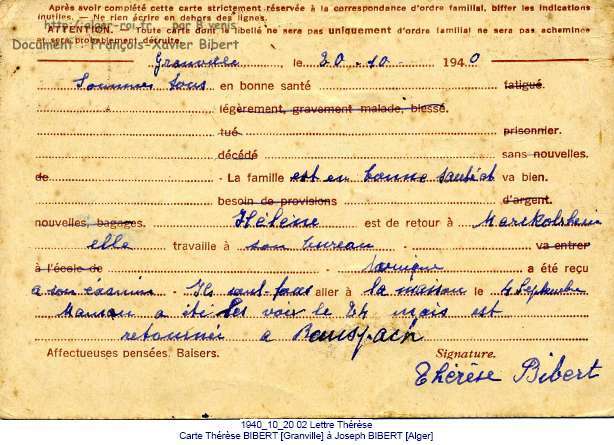 Après avoir complété cette carte strictement réservée à la correspondance d'ordre familial, biffer les indications
inutiles. — Ne rien écrire en dehors des lignes.
ATTENTION. — Toute carte dont le libellé ne sera pas uniquement d'ordre familial ne sera pas acheminée
et sera probablement détruite.
Document : François-Xavier Bibert
Granville le 20-10- 1940
Sommes tous en bonne santé fatigué.
légèrement, gravement malade, blessé.
tué. prisonnier.
décédé sans nouvelles.
de - La famille est en bonne santé et va bien.
besoin de provisions d'argent.
nouvelles, bagages. Hélène est de retour à Marckolsheim
elle travaille à son bureau - va entrer
à l'école de - a été reçu
à son examin - Ils sont tous aller à la maison le 4 Septembre
Maman a été les voir le 24 mais est
retournée a
Affectueuses pensées. Baisers. Signature.
Thérèse Bibert
1940_10_20 02 Lettre Thérèse
Carte Thérèse BIBERT [Granville] à Joseph BIBERT [Alger]